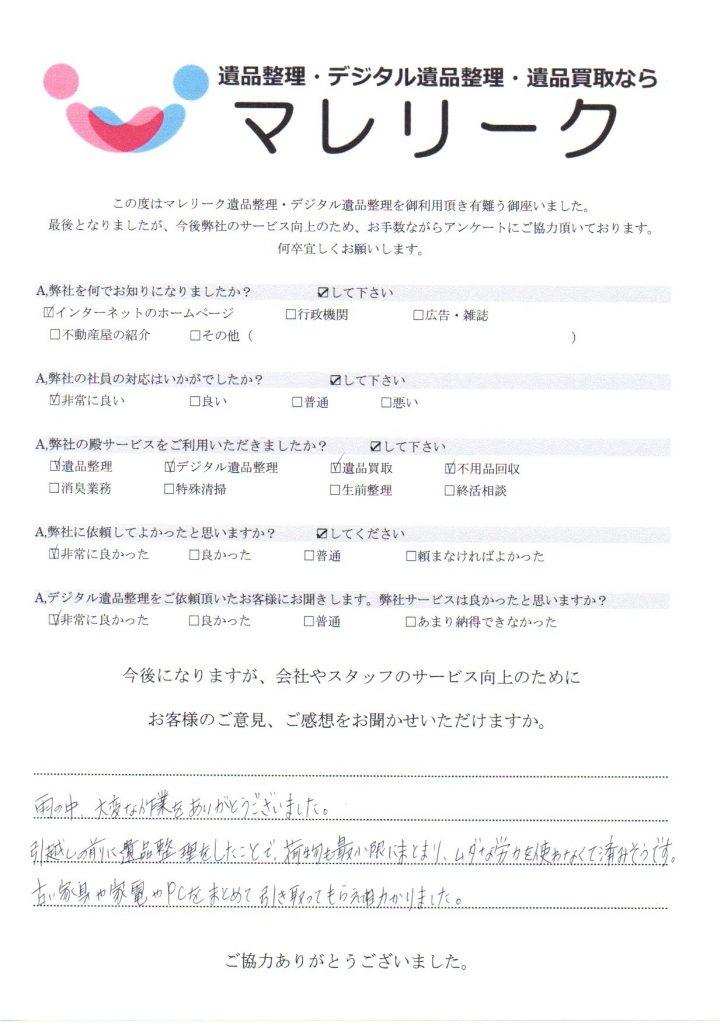 遺品整理・デジタル遺品整理・遺品買取なら
マレリーク
この度はマレリーク遺品整理・デジタル遺品整理を御利用頂き有難う御座いました。
最後となりましたが、今後弊社のサービス向上のため、お手数ながらアンケートにご協力頂いております。
何卒宜しくお願いします。
A,弊社を何でお知りになりましたか？ ☑して下さい
☑インターネットのホームページ □行政機関 □広告・雑誌
□不動産屋の紹介 □その他（ ）
A,弊社の社員の対応はいかがでしたか？ ☑して下さい
☑非常に良い □良い □普通 □悪い
A,弊社の殿サービスをご利用いただきましたか？ ☑して下さい
☑遺品整理 ☑デジタル遺品整理 ☑遺品買取 ☑不用品回収
□消臭業務 □特殊清掃 □生前整理 □終活相談
A,弊社に依頼してよかったと思いますか？ ☑してください
☑非常に良かった □良かった □普通 □頼まなければよかった
A,デジタル遺品整理をご依頼頂いたお客様にお聞きします。弊社サービスは良かったと思いますか？
☑非常に良かった □良かった □普通 □あまり納得できなかった
今後になりますが、会社やスタッフのサービス向上のために
お客様のご意見、ご感想をお聞かせいただけますか。
雨の中、大変な作業をありがとうございました。
引越しの前に遺品整理をしたことで、荷物も最小限にまとまり、ムダな労力を使わなくて済みそうです。
古い家具や家電やPCをまとめて引き取ってもらえ助かりました。
ご協力ありがとうございました。